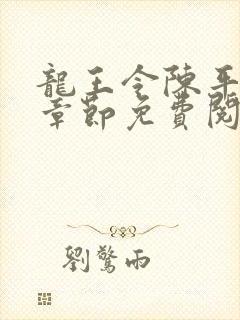 龍王令陳平
章節免費閱
劉驚雨